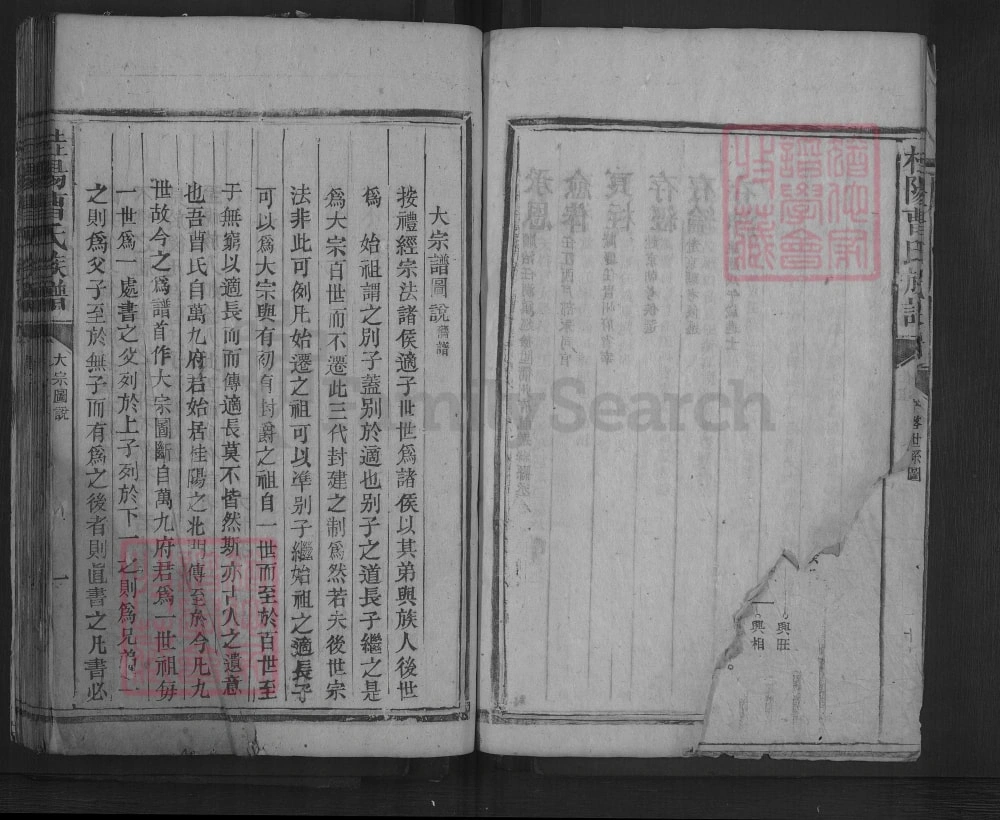 桂陽曹氏族譜
世系圖
興旺
興相
大宗譜圖說 舊譜
按禮經宗法諸侯適子世世爲諸侯以其弟與族人後世
爲 始祖謂之別子蓋別於適也別子之道長子繼之是
爲大宗百世而不遷此三代封建之制爲然若夫後世宗
法非此可例凡始遷之祖可以準別子繼始祖之適長子
可以爲大宗與有初有封爵之祖自一世而至於百世至
于無窮以適長而傳適長莫不皆然斯亦古人之遺意
也吾曹氏自萬九府君始居桂陽之北門傳至於今凡九
世故今之爲譜首作大宗圖斷自萬九府君爲一世祖每
一世爲一處書之父列於上子列於下一之則爲兄弟二
之則爲父子至於無子而有爲之後者則直書之凡書必
桂陽曹氏族譜
大宗圖說
一
FamilySearch